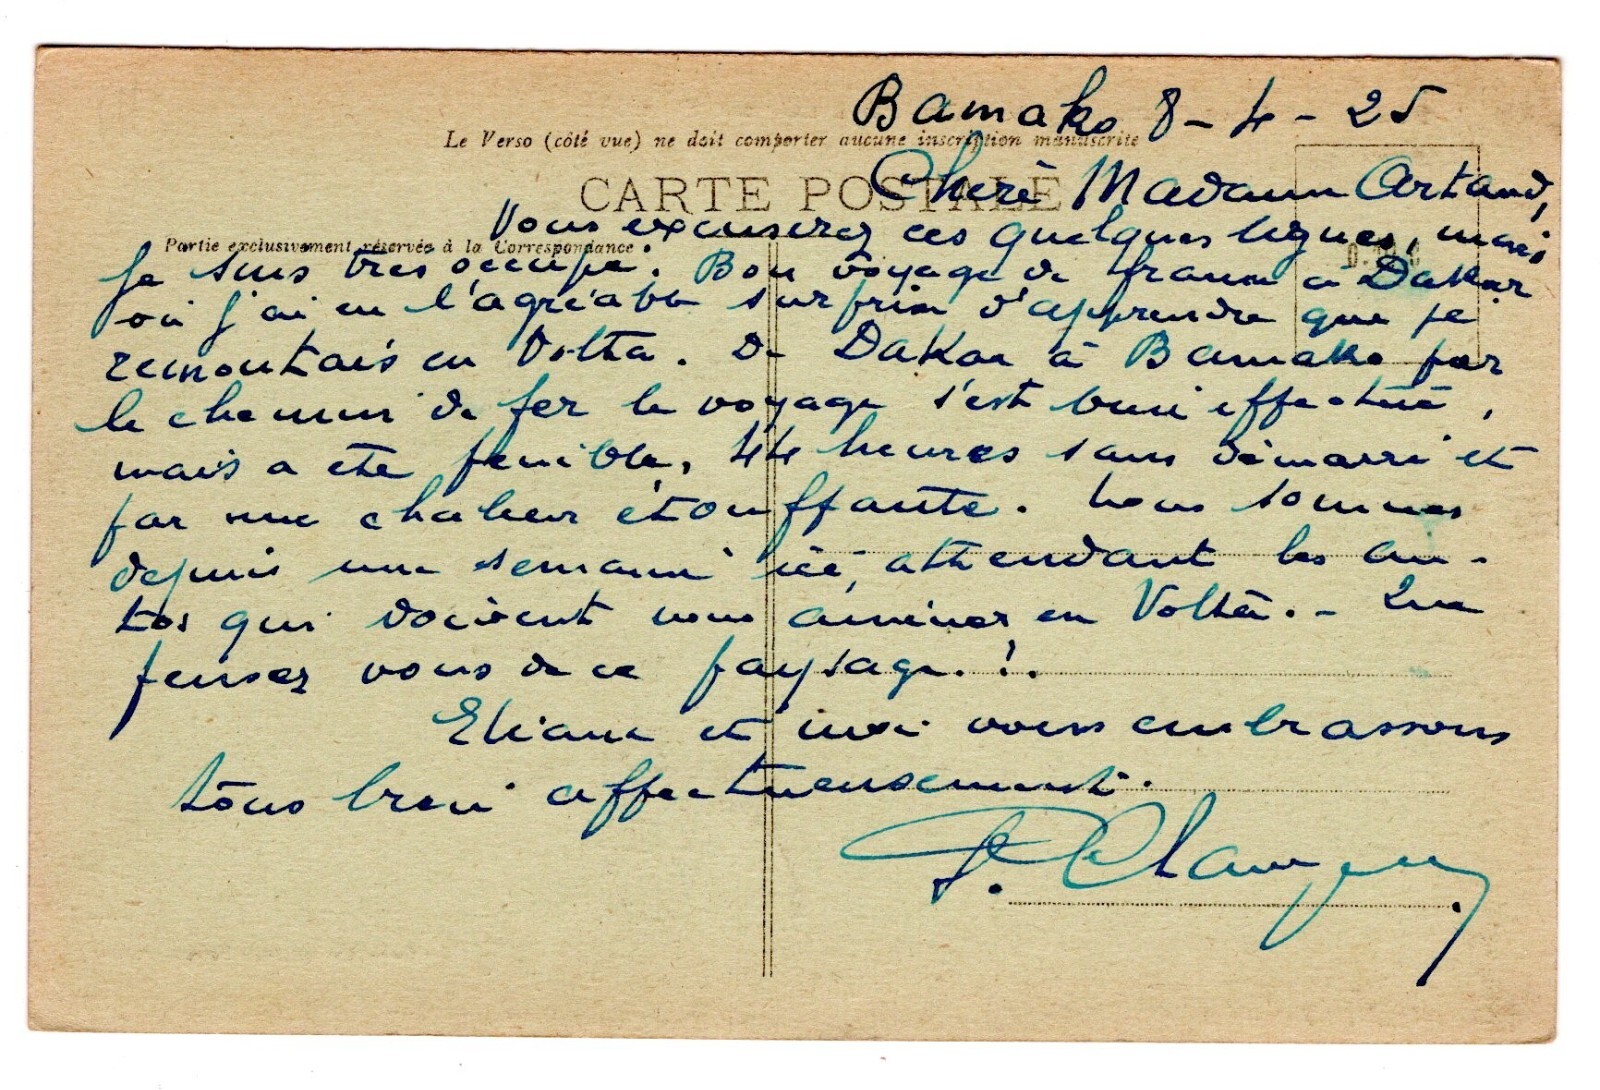 Bamako 8-4-25
Le Verso (côté vue) ne doit comporter aucune inscription manuscrite
CARTE POSTALE
Chère Madame Artaud,
Partie exclusivement réservée à la Correspondance.
Vous excuserez ces quelques lignes, mais
je suis très occupé. Bon voyage de france à Dakar
où j'ai eu l'agréable surprise d'apprendre que je
remontais en Volta. De Dakar à Bamako par
le chemin de fer le voyage s'est bien effectué,
mais a été pénible, 44 heures sans démarré et
par une chaleur étouffante. Nous sommes
depuis une semaine ici, attendant les au-
tos qui doivent nous amener en Volta. - Que
pensez vous de ce paysage. !.
Eliane et moi vous embrassons
tous bien affectueusement.